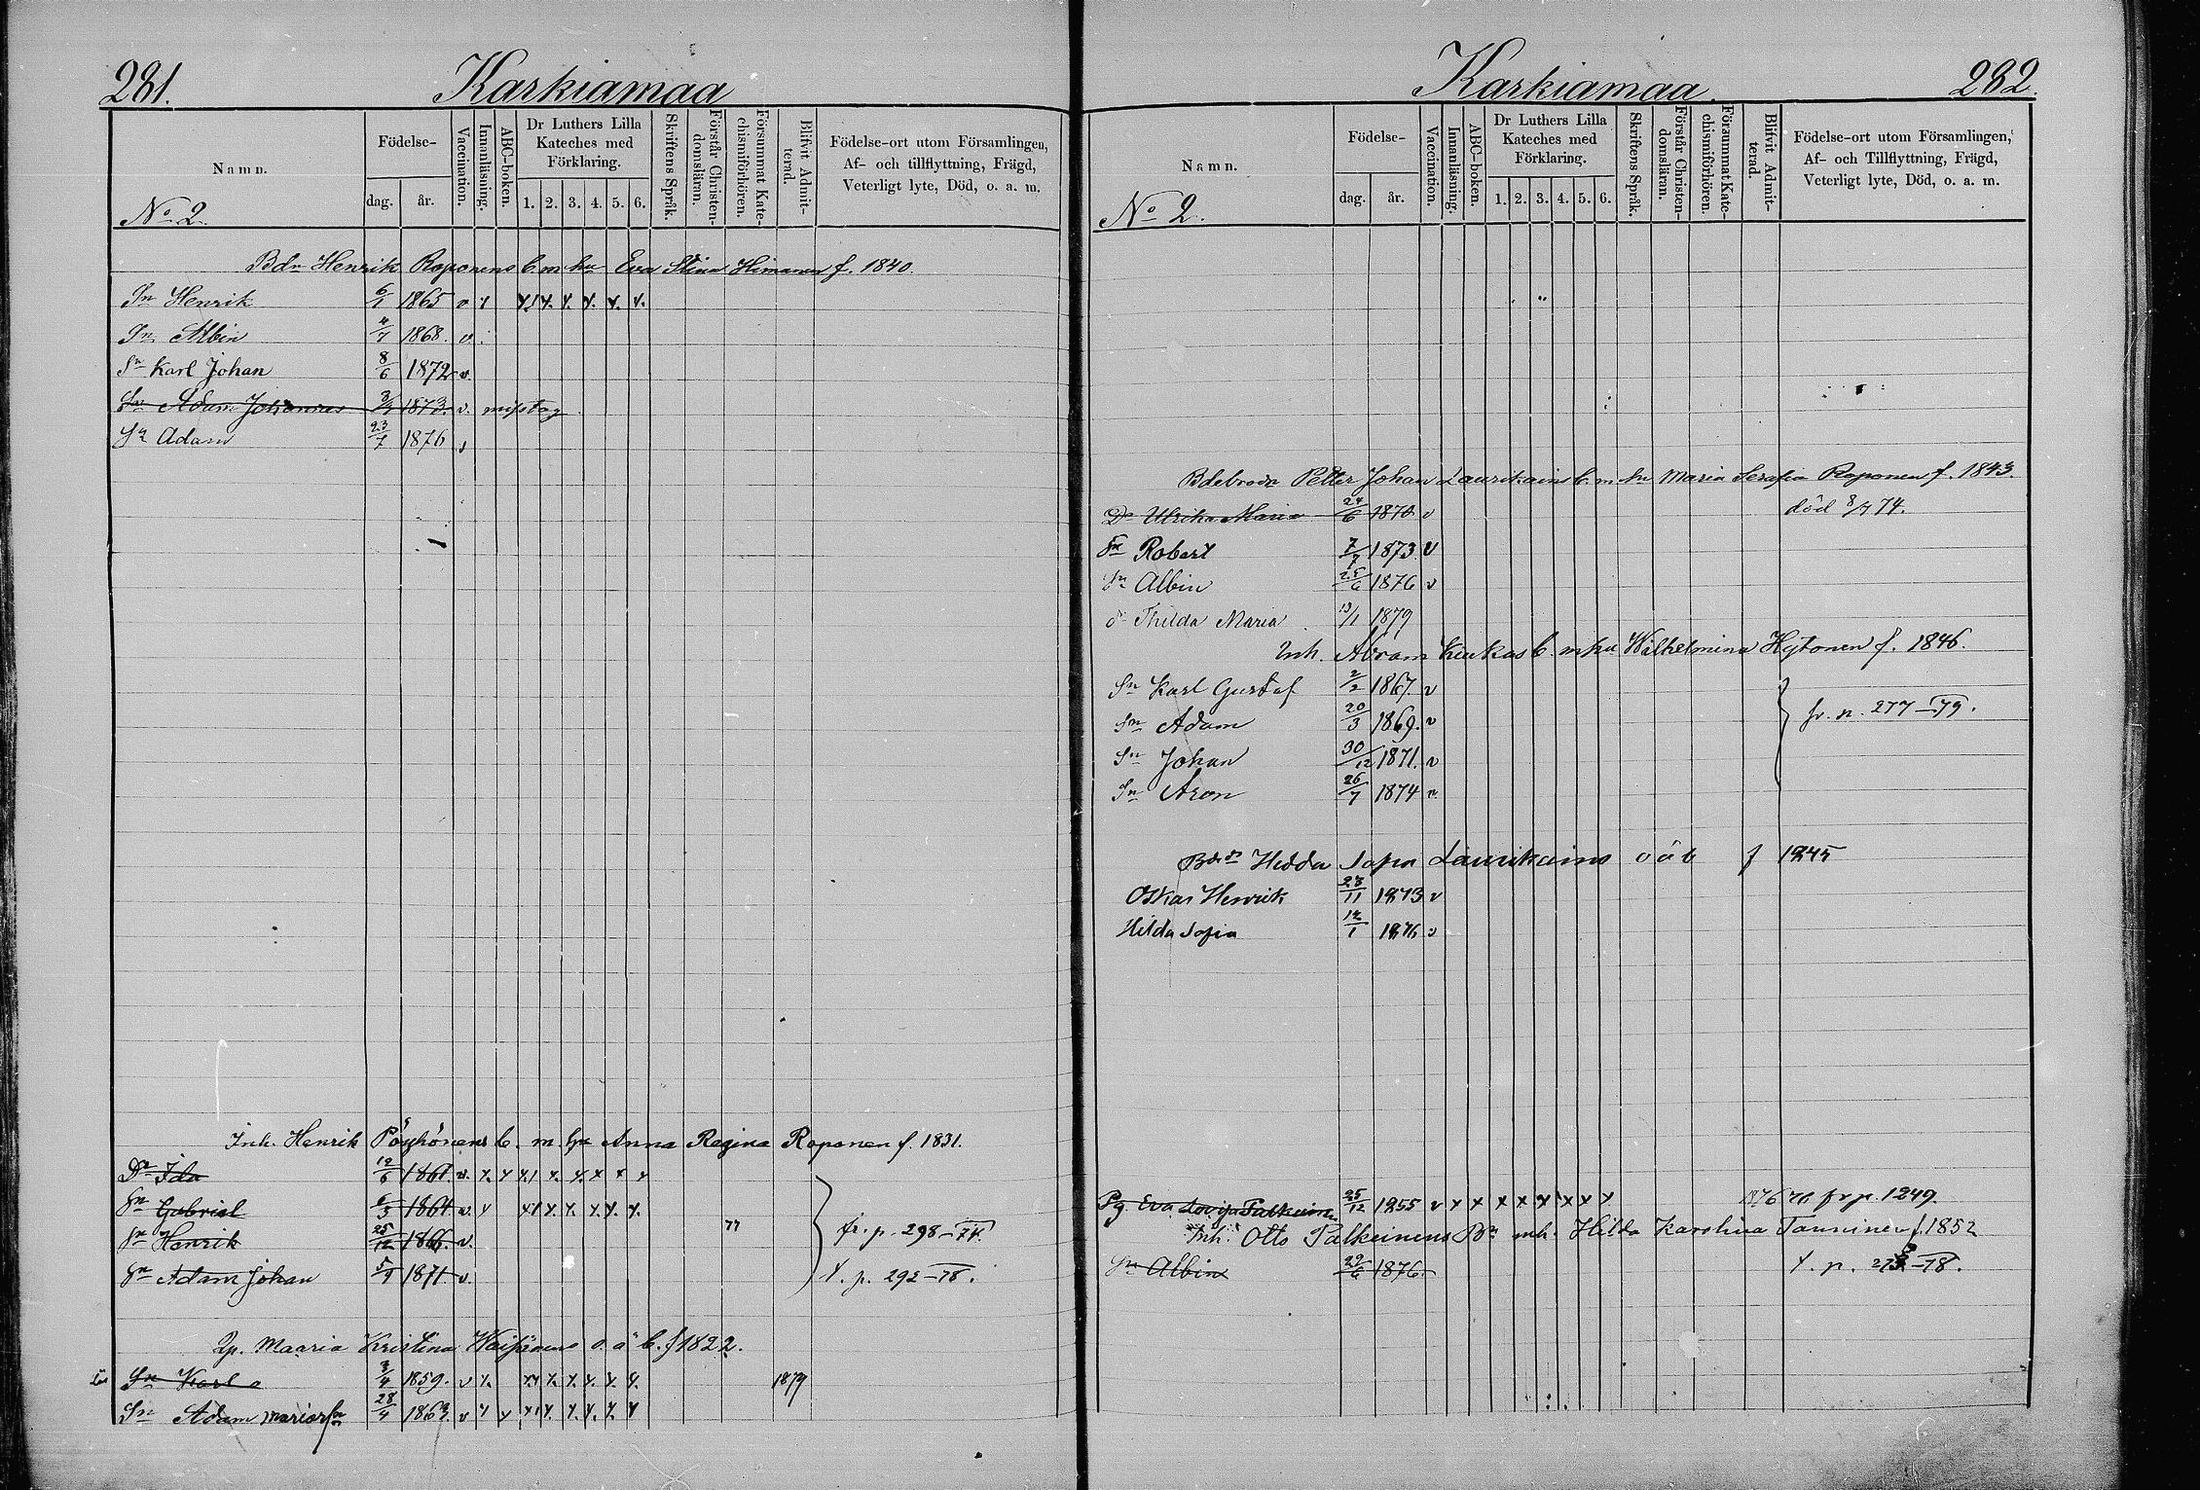 281.
Karkiamaa
Namn.
Födelse-
dag.
år.
Vaccination.
Innanläsning.
ABC-boken.
Dr Luthers Lilla Kateches med Förklaring.
1. 2. 3. 4. 5. 6.
Skriftens Språk.
Förstår Christendomsläran.
Försummat Katechismiförhören.
Blifvit Admitterad.
Födelse-ort utom Församlingen,
Af- och tillflyttning, Frägd,
Veterligt lyte, Död, o. a. m.
No 2.
Bdn Henrik Roponens b. m hu Eva Stina Himanen f. 1840.
Sn Henrik 6/1 1865 v x x x x x x x
Sn Albin 4/7 1868. v
Sn Karl Johan 8/6 1872 v.
Sn Adam Johannes 1873. v. misstag
Sn Adam 23/7 1876
Inh. Henrik Pöyhönens b. m hu Anna Regina Roponen f. 1831.
Dr Ida 12/6 1861. v. x x x x x x x x
Sn Gabriel 6/3 1864 v. x x x x x x x
Sn Henrik 25/12 1866. v. 77 fr. p. 298-74.
Sn Adam Johan 5/9 1871 v. t. p. 292-78.
Maaria Kristina o. ä b. f 1822.
Sn Karl 3/4 1859. v x. x x x x x x 1879
Sn Adam 28/4 1863. v x x x x x x x x
Karkiamaa.
282.
Namn.
Födelse-
dag.
år.
Vaccination.
Innanläsning.
ABC-boken.
Dr Luthers Lilla Kateches med Förklaring.
1. 2. 3. 4. 5. 6.
Skriftens Språk.
Förstår Christendomsläran.
Försummat Katechismiförhören.
Blifvit Admitterad.
Födelse-ort utom Församlingen,
Af- och Tillflyttning, Frägd,
Veterligt lyte, Död, o. a. m.
No 2.
Petter Johan Laurikains b. m hu Maria Serafia Roponen f. 1843.
Dr Ulrika Maria 24/6 1870 v död 8/7 74.
Sn Robert 7/7 1873 v
Sn Albin 25/6 1876 v
d Thilda Maria 13/1 1879
Inh. Abram Kiukas b. m hu Wilhelmina Hytönen f. 1846.
Sn Karl Gustaf 2/2 1867. v
Sn Adam 20/3 1869. v fr. p. 277-79.
Sn Johan 30/12 1871. v
Sn Aron 26/7 1874 v.
Hedda Sofia Laurikains o ä b f 1845
Oskar Henrik 23/11 1873 v
Hilda Sofia 12/1 1876 v
Pg Eva Lovisa 25/12 1855 v x x x x x x x x fr p. 1249.
Inh. Otto Talkeinens Bn mh. Hilda Karolina Tanninen f. 1852
Sn Albin 29/6 1876.